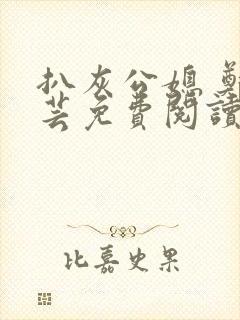 扒灰公媳
芸免費閱讀
比嘉史果